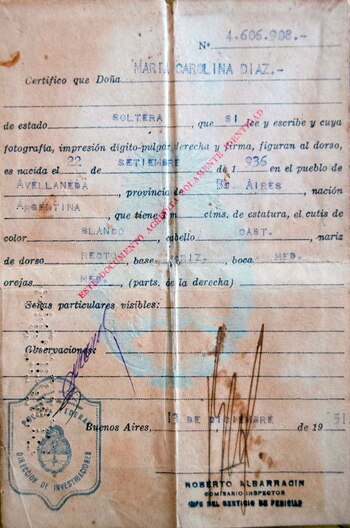 Nº 4.606.908.-
MARIA CAROLINA DIAZ.-
Certifico que Doña
de estado SOLTERA, que SI lee y escribe y cuya
fotografía, impresión dígito-pulgar derecha y firma, figuran al dorso,
es nacida el 22 de SETIEMBRE de 1 936 en el pueblo de
AVELLANEDA provincia de BS AIRES, nación
ARGENTINA, que tiene 1m ctms. de estatura, el cutis de
color BLANCO, cabello CAST., nariz
de dorso RECTO, base HORIZ., boca MED.
orejas MED. (parts. de la derecha)
ESTE DOCUMENTO ACREDITA SOLAMENTE IDENTIDAD
Señas particulares visibles:
Observaciones:
POLICIA FEDERAL
DIRECCION DE INVESTIGACIONES
Buenos Aires, 13 DE DICIEMBRE de 19 5
ROBERTO ALBARRACIN
COMISARIO INSPECTOR
JEFE DEL SERVICIO DE PERICIAS